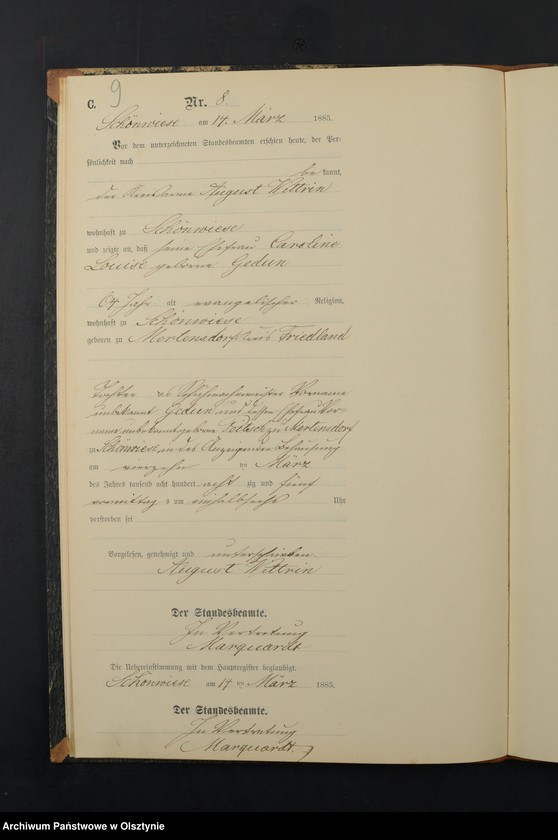 C. 9 Nr. 8.
Schönwiese am 14. März 1885.
Vor dem unterzeichneten Standesbeamten erschien heute, der Per-
sönlichkeit nach
be kannt,
der August Wittrin
wohnhaft zu Schönwiese
und zeigte an, daß seine Ehefrau Caroline
Louise geborene Gedun
64 Jahr alt evangelischer Religion,
wohnhaft zu Schönwiese
geboren zu Mertensdorf Kreis Friedland
Tochter des Vorname
unbekannt Gedun und dessen Ehefrau Vor-
name unbekannt geborene zu Mertensdorf
zu Schönwiese in des Anzeigenden Behausung
am vierzehn ten März
des Jahres tausend acht hundert acht zig und fünf
vormittag s um einhalbsechs Uhr
verstorben sei
Vorgelesen, genehmigt und unterschrieben
August Wittrin
Der Standesbeamte.
In Vertretung
Marquardt
Die Uebereinstimmung mit dem Hauptregister beglaubigt.
Schönwiese am 14 ten März 1885.
Der Standesbeamte.
In Vertretung
Marquardt.
Archiwum Państwowe w Olsztynie